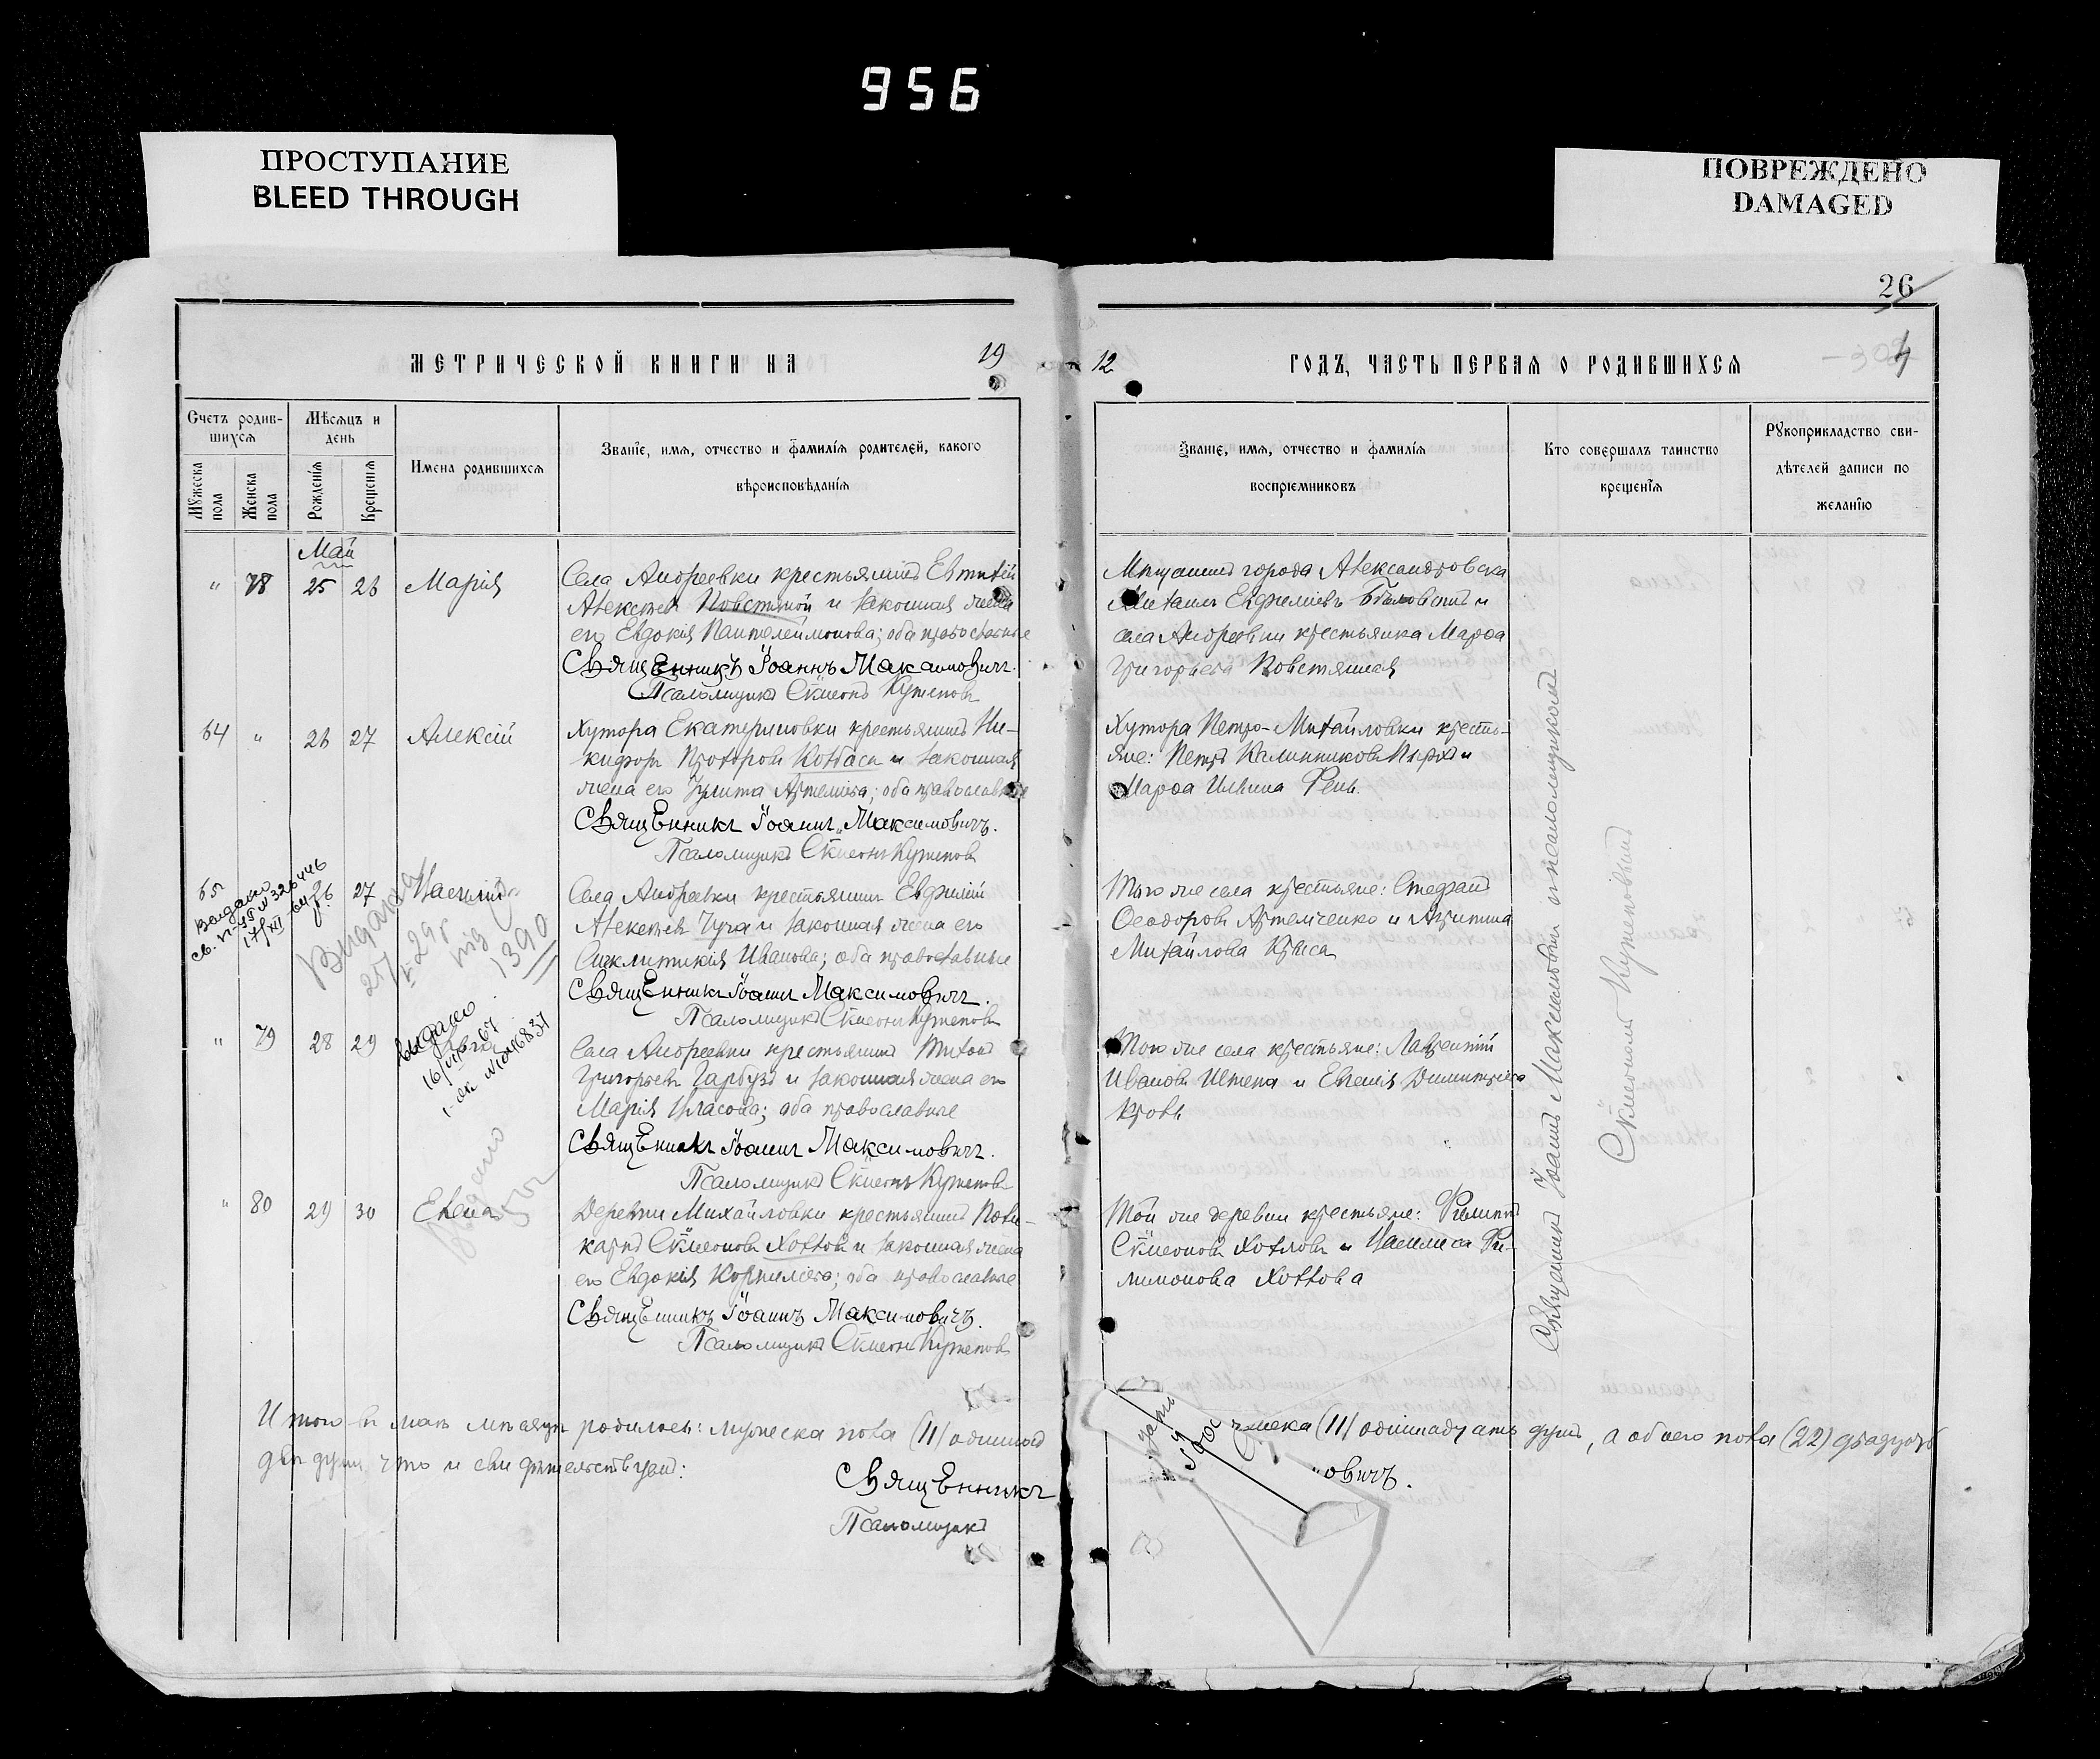 956
ПРОСТУПАНИЕ
BLEED THROUGH
ПОВРЕЖДЕНО
DAMAGED
26
МЕТРИЧЕСКОЙ КНИГИ НА 19
12 ГОДЪ, ЧАСТЬ ПЕРВАЯ О РОДИВШИХСЯ
Счетъ родив-
шихся
Мѣсяцъ и
день
Мужеска
пола
Женска
пола
Рожденія
Крещенія
Имена родившихся
Званіе, имя, отчество и фамилія родителей, какого
вѣроисповѣданія
Званіе, имя, отчество и фамилія
воспріемниковъ
Кто совершалъ таинство
крещенія
Рукоприкладство сви-
дѣтелей записи по
желанію
Май
" 78 25 26 Марія
Села Андреевки крестьянинъ Евтихій
Алексѣевъ Повстяной и законная жена
его Евдокія Пантелеймонова; оба православные
Священникъ Іоаннъ Максимовичъ.
Псаломщикъ Сѵмеонъ Кутеповъ
Мѣщанинъ города Александровска
Михаилъ Евфиміевъ и
села Андреевки крестьянка Марѳа
Григорьева Повстяная
64 " 26 27 Алексій
Хутора Екатериновки крестьянинъ Ни-
кифоръ Прохоровъ Ковбаса и законная
жена его Іулита Артемьева; оба православные
Священникъ Іоаннъ Максимовичъ.
Псаломщикъ Сѵмеонъ Кутеповъ
Хутора Петро-Михайловки кресть-
яне: Петръ Калинниковъ и
Марѳа Ильина Рень.
65 26 27 Василій
Выдано
Видана
1390
Села Андреевки крестьянинъ Евфимій
Алексѣевъ Чуча и законная жена его
Сигклитикія Иванова; оба православные
Священникъ Іоаннъ Максимовичъ.
Псаломщикъ Сѵмеонъ Кутеповъ
Того же села крестьяне: Стефанъ
Ѳеодоровъ Артемченко и Агриппина
Михайлова Крыса
" 79 28 29
Выдано
Села Андреевки крестьянинъ Титъ
Григорьевъ Гарбузъ и законная жена его
Марія Власова; оба православные
Священникъ Іоаннъ Максимовичъ.
Псаломщикъ Сѵмеонъ Кутеповъ
Того же села крестьяне: Лаврентій
Ивановъ Шпета и Евгенія Димитріева
" 80 29 30 Елена
Выдано
Деревни Михайловки крестьянинъ Поли-
карпъ Сѵмеоновъ Хохловъ и законная жена
его Евдокія Корниліева; оба православные
Священникъ Іоаннъ Максимовичъ.
Псаломщикъ Сѵмеонъ Кутеповъ
Той же деревни крестьяне: Филиппъ
Сѵмеоновъ Хохловъ и Василиса Фи-
лимонова Хохлова
Священникъ Іоаннъ Максимовичъ и псаломщикомъ
Сѵмеономъ Кутеповымъ
Итого въ маѣ мѣсяцѣ родилось: мужеска пола (11) одиннад
женска (11) одиннадцать душъ, а обоего пола (22) двадцать
двѣ души, что и свидѣтельствуемъ:
Священникъ
овичъ.
Псаломщикъ